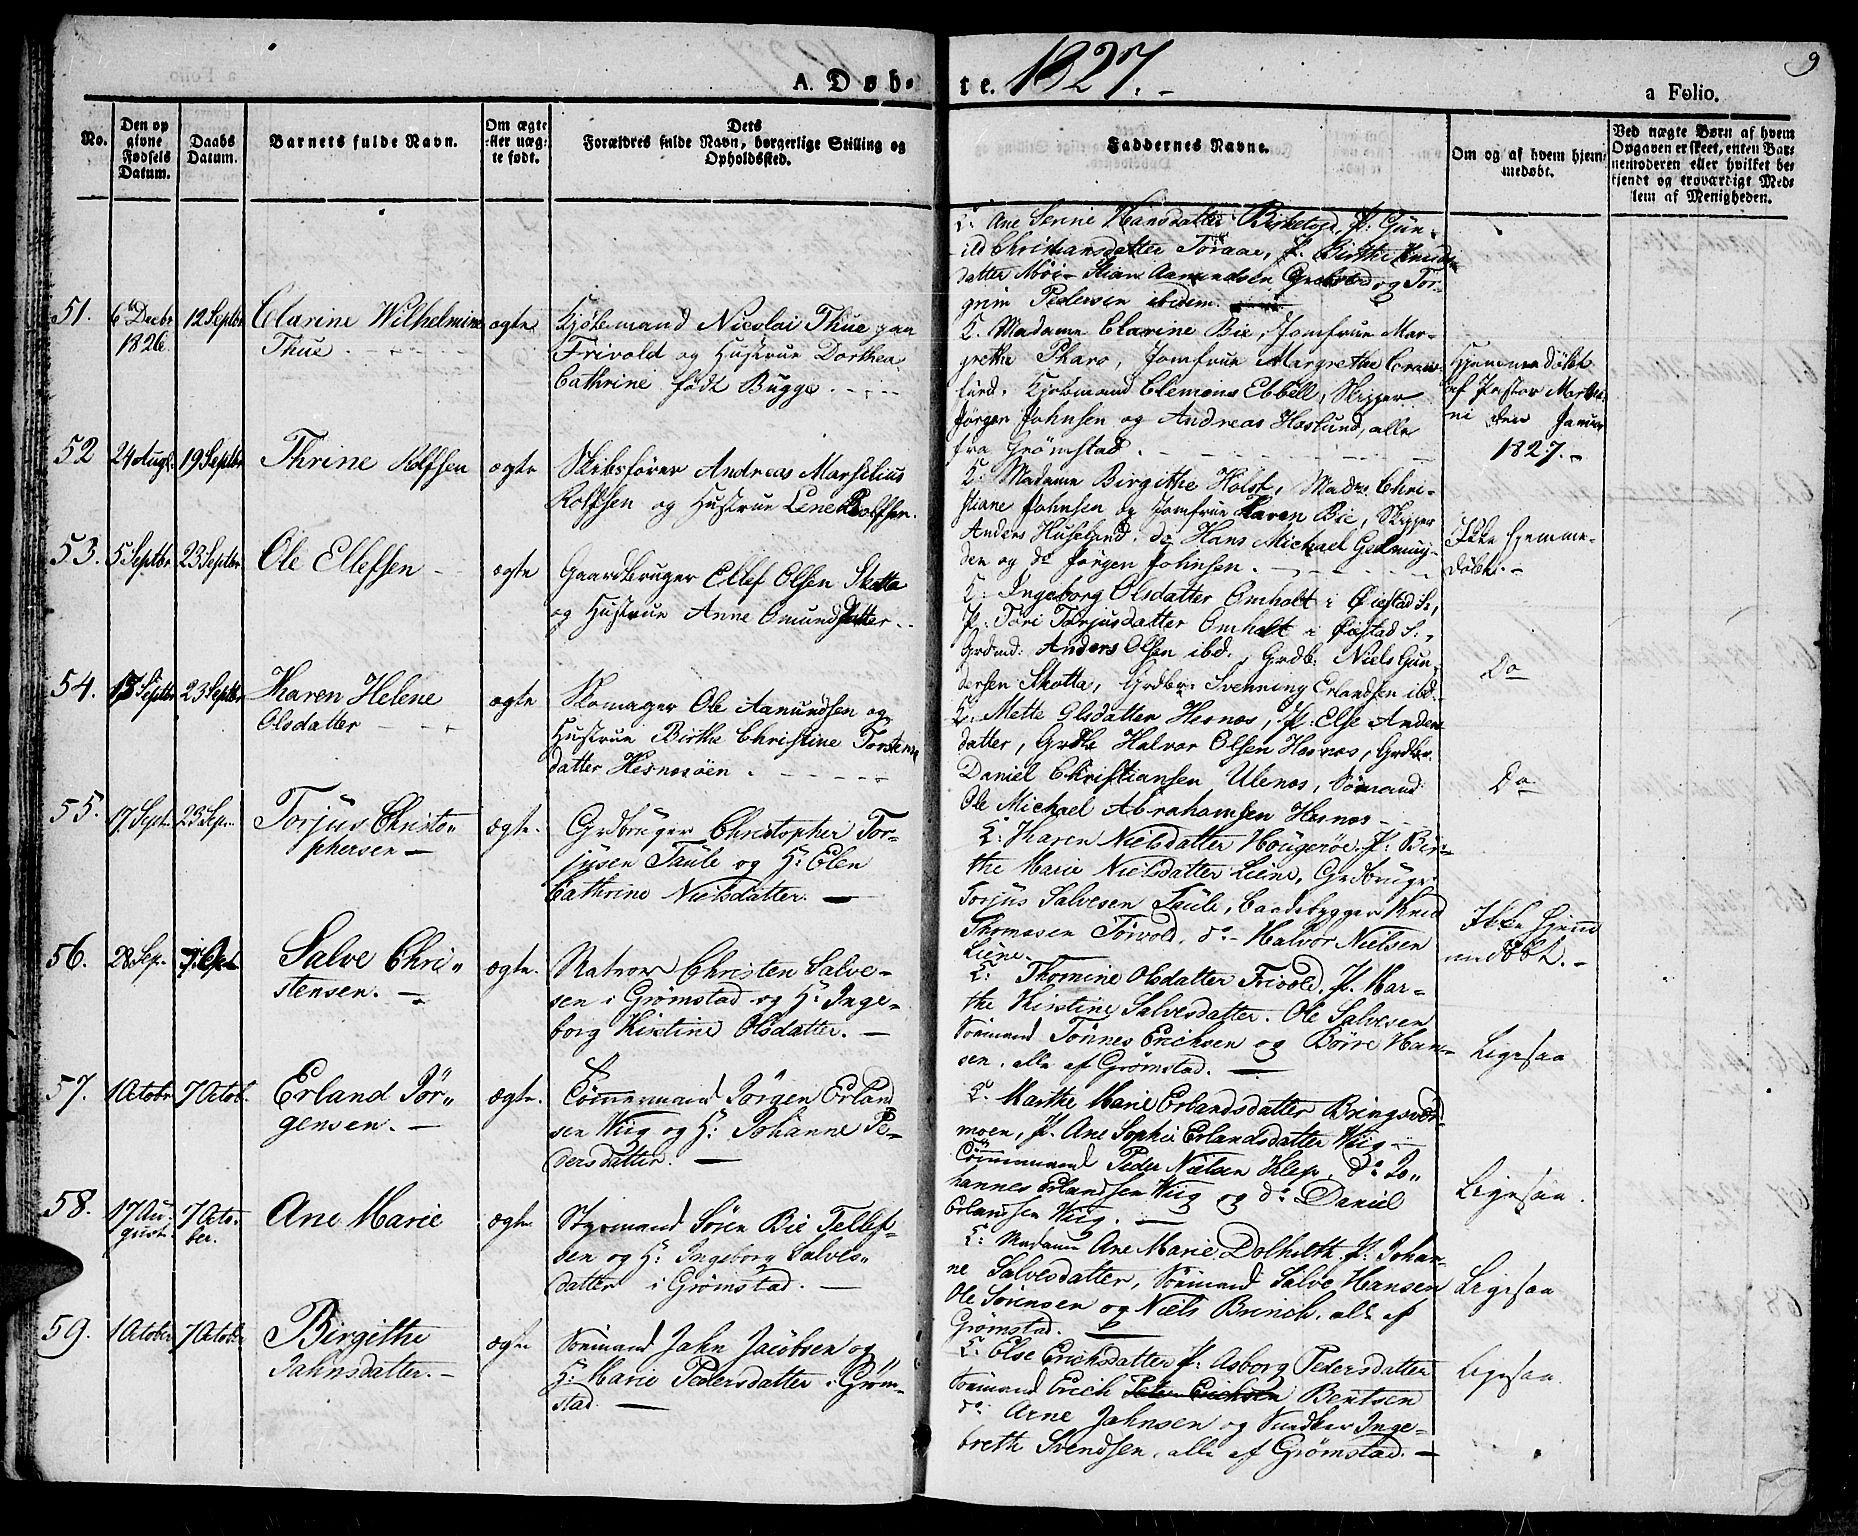 A. Døb-
te. 1827.
9
a Folio.
No.
Den op
givne
Fødsels
Datum.
Daabs
Datum.
Barnets fulde Navn.
Om ægte
eller uæg-
te født.
Dets
Forældres fulde Navn, borgerlige Stilling og
Opholdssted.
Faddernes Navne.
Om og af hvem hjem-
medøbt.
Ved uægte Børn af hvem
Opgaven er skeet, enten Bar-
nemoderen eller hvilket be-
kjendt og troværdigt Med-
lem af Menigheden.
K: Ane Serine Hansdatter Birketveit, P: Gun-
ild Christiansdatter Toraae, P. Birthe Knuds-
datter Moi- Stian Aamundsen og Tor-
grim Pedersen ibidem.
51.
6 Decbr
1826.
12 Septbr
Clarine Wilhelmine
Thue.
ægte
Kjøbmand Nicolai Thue paa
Frivold og Hustrue Dorthea
Cathrine født Bugge.
K. Madame Clarine Bie, Jomfrue Mar-
grethe Pharo, Jomfrue Margrethe Craw-
furd, Kjøbmand Clemens Ebbell, Skipper
Jørgen Johnsen og Andreas Haslund, alle
fra Grømstad.
Hjemmedøbt
af Pastor Marti-
ni den Januar
1827.
52
24 Augt.
19 Septbr
Thrine Rolfsen
ægte
Skibsfører Andreas Marselius
Rolfsen og Hustrue Lene Rolfsen.
K: Madame Birgithe Holst, Made Chri-
stiane Johnsen og Jomfrue Karen Bie, Skipper
Anders Huseland, do Hans Michael Gulmuy-
den og do Jørgen Johnsen.
Ikke hjemme-
døbt.
53.
5 Septbr
23 Septbr
Ole Ellefsen
ægte
Gaardbruger Ellef Olsen Skotta
og Hustrue Anne Omundsdatter.
K: Ingeborg Olsdatter Omholt i Øiestad S.,
P: Tori Torjusdatter Omholt i Øiestad S.,
Grdmd: Anders Olsen ibd., Grdb: Niels Gun-
dersen Skotta, Grdbr: Svenning Erlandsen ibd.
Do
54.
15 Septbr
23 Septbr
Karen Helene
Olsdatter
ægte
Skomager Ole Aamundsen og
Hustrue Birthe Christine Torstens
datter Hesnesøen.
K: Mette Olsdatter Hesnes, P: Else Anders
datter, Grdbr Halvor Olsen Hesnes, Grdbr
Daniel Christiansen Ulenes, Sømand
Ole Michael Abrahamsen Hesnes
Do
55.
17 Sept.
23 Sep.
Torjus Christo-
phersen
ægte.
Grdbruger Christopher Tor-
jusen Taule og H: Elen
Cathrine Nielsdatter.
K: Karen Nielsdatter Hougerøe, P: Bir-
the Marie Nielsdatter Liene, Grdbruger
Torjus Salvesen Taule, Baadsbygger Knud
Thomasen Törvold, do Halvor Nielsen
Liene.
Ikke hjem
medøbt.
56.
28 Sep.
Salve Chri-
stensen.
ægte.
Matros Christen Salve-
sen i Grømstad og H: Inge-
borg Kirstine Olsdatter.
K: Thomine Olsdatter Frivold, P. Mar-
the Kirstine Salvesdatter. Ole Salvesen
Sømand Tønnes Erichsen og Børre Han-
sen, alle af Grømstad.
Ligesaa
57.
1 Octobr
7 Octob.
Erland Jør-
gensen.
ægte.
Tømmermand Jørgen Erland
sen Wiig og H: Johanne Pe-
dersdatter.
K. Marthe Marie Erlandsdatter Bringsværd-
moen, P. Ane Sophie Erlandsdatter Wiig
Tømmermand Peder Nielsen Klep, do Jo-
hannes Erlandsen Wiig og do Daniel
Erlandsen Wiig.
Ligesaa.
58.
17 Au-
gust.
7 Octo-
ber.
Ane Marie
ægte
Styrmand Søren Bie Tellef-
sen og H: Ingeborg Salves-
datter i Grømstad.
K: Madam Ane Marie Dolhilth. P. Johan-
ne Salvesdatter, Sømand Salve Hansen
Ole Sørensen og Niels Brinch, alle af
Grømstad.
Ligesaa
59.
1 October
7 Octobr
Birgithe
Jahnsdatter.
ægte
Sømand Jahn Jacobsen og
H: Marie Pedersdatter i Grøm-
stad.
K: Else Erichsdatter P: Asborg Pedersdatter
Sømand Erich Bentsen
do Arne Jahnsen og Inge-
breth Svendsen, alle af Grømstad.
Ligesaa.